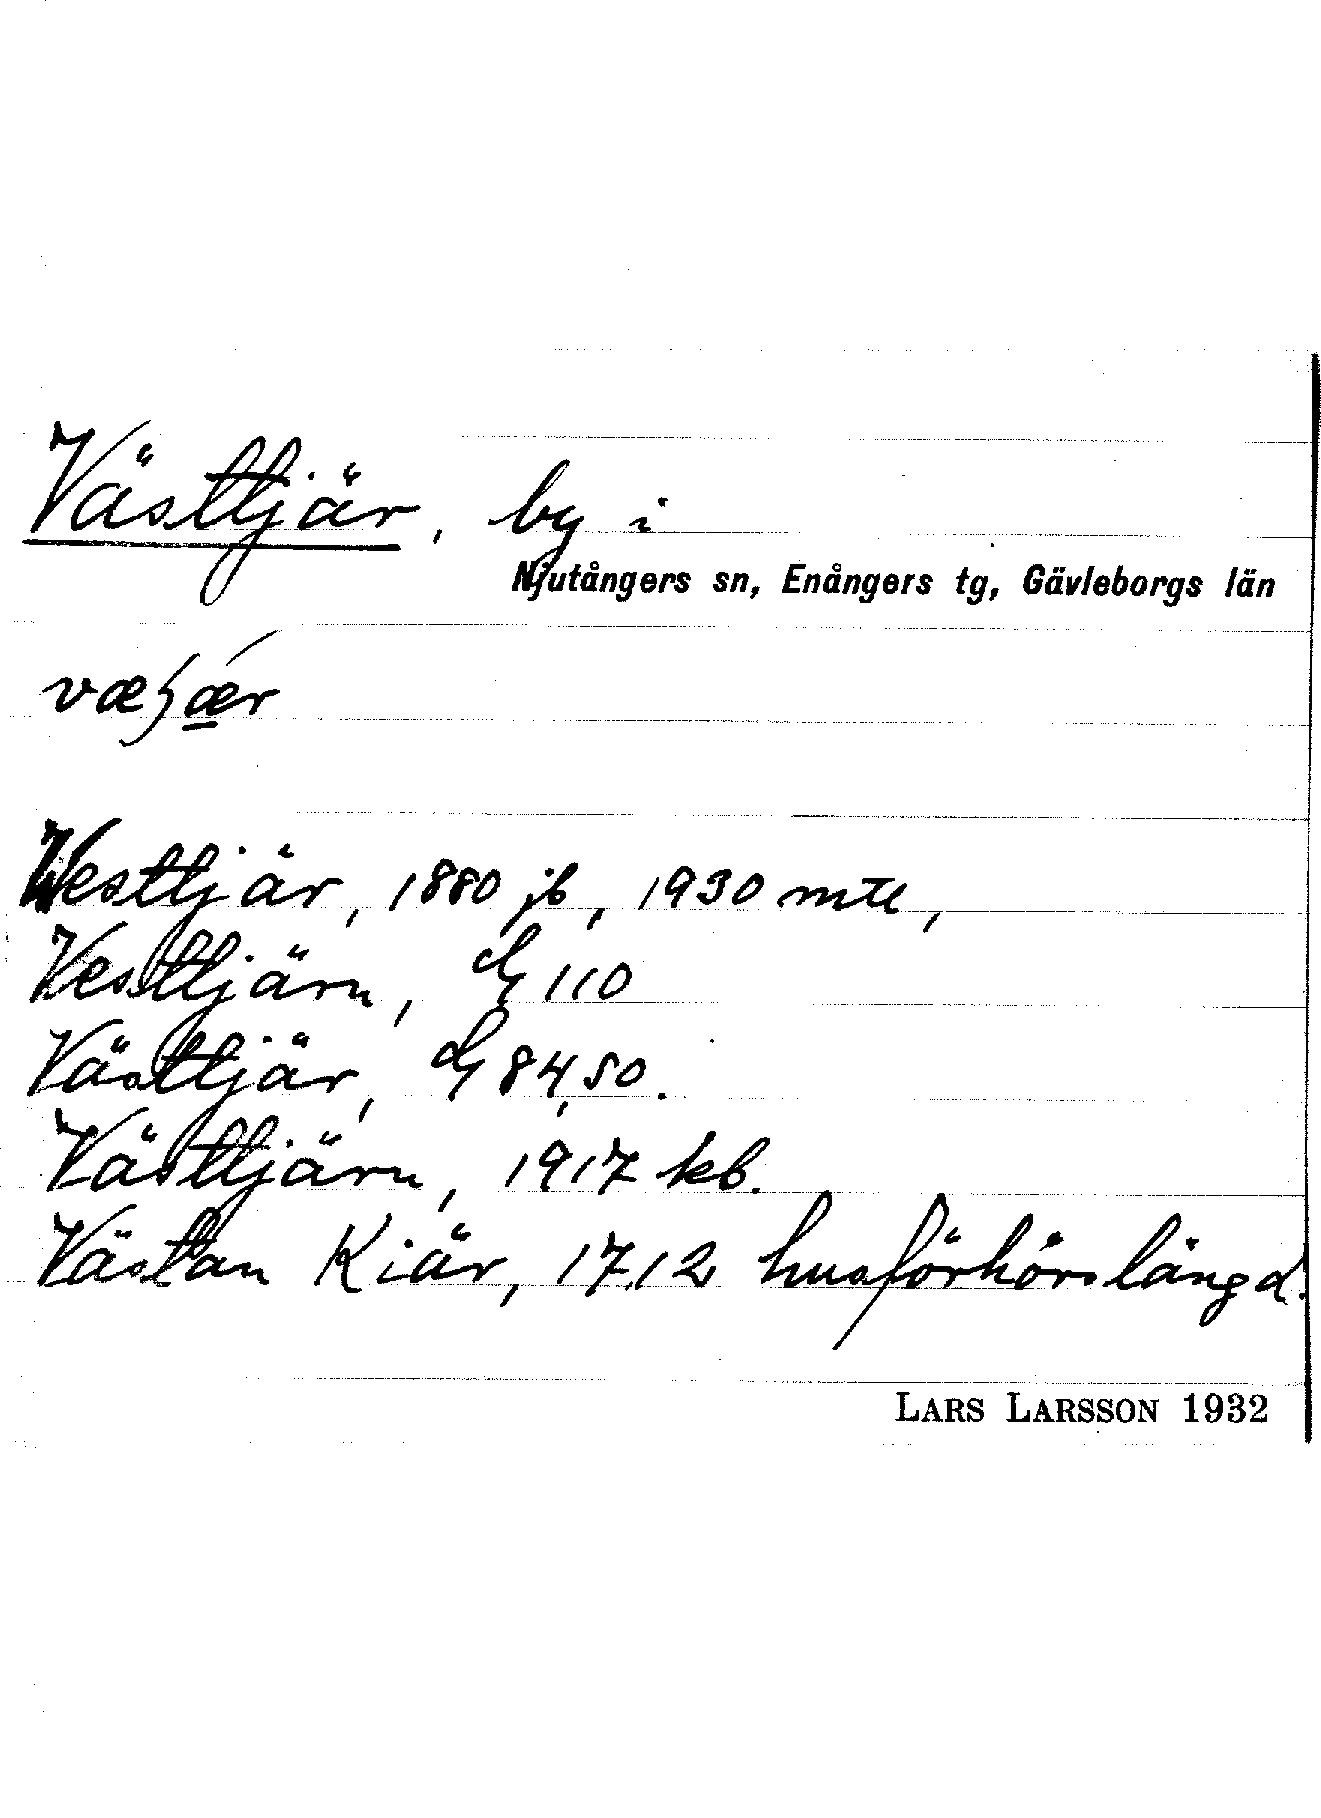 Västtjär, by i
Njutångers sn, Enångers tg, Gävleborgs län
Westtjär, 1880 jb, 1930 mtl,
Vesttjärn, 110
Västtjär, 84,50.
Västtjärn, 1917 kb.
Västan Kiär, 1712 husförhörslängd.
LARS LARSSON 1932